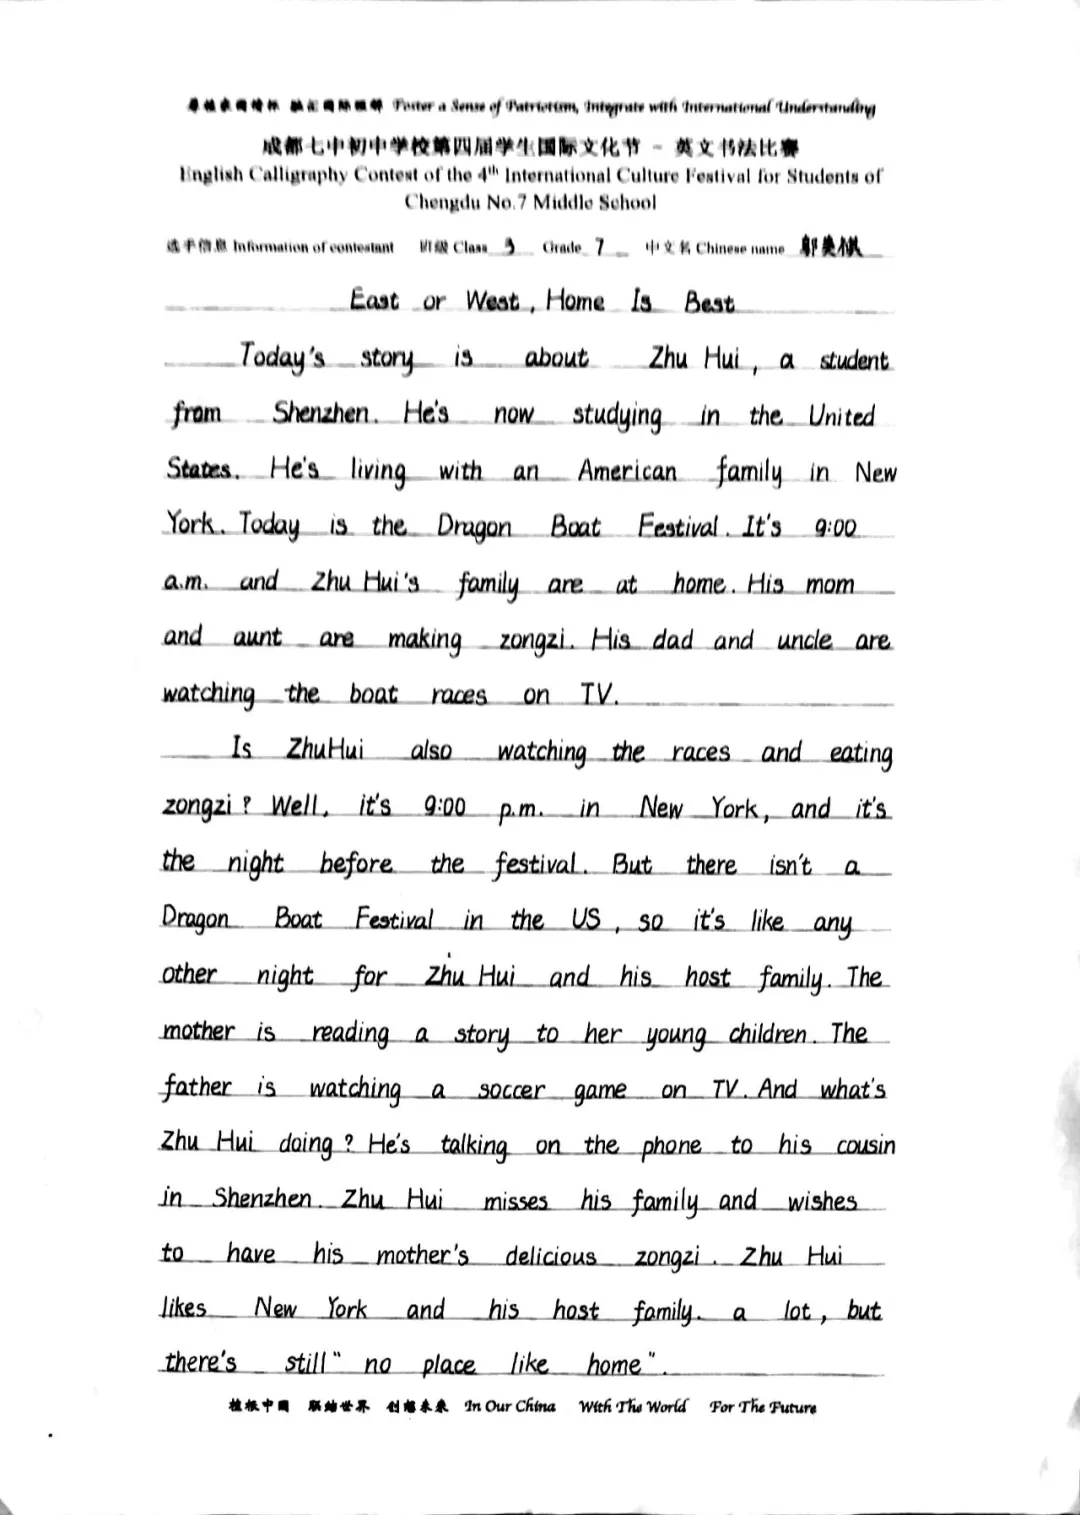 厚植家国情怀 融汇国际理解 Foster a Sense of Patriotism, Integrate with International Understanding
成都七中初中学校第四届学生国际文化节 - 英文书法比赛
English Calligraphy Contest of the 4th International Culture Festival for Students of
Chengdu No.7 Middle School
选手信息 Information of contestant 班级 Class 3 Grade 7 中文名 Chinese name
East or West, Home Is Best
Today's story is about Zhu Hui, a student
from Shenzhen. He's now studying in the United
States. He's living with an American family in New
York. Today is the Dragon Boat Festival. It's 9:00
a.m. and Zhu Hui's family are at home. His mom
and aunt are making zongzi. His dad and uncle are
watching the boat races on TV.
Is ZhuHui also watching the races and eating
zongzi? Well, it's 9:00 p.m. in New York, and it's
the night before the festival. But there isn't a
Dragon Boat Festival in the US, so it's like any
other night for Zhu Hui and his host family. The
mother is reading a story to her young children. The
father is watching a soccer game on TV. And what's
Zhu Hui doing? He's talking on the phone to his cousin
in Shenzhen. Zhu Hui misses his family and wishes
to have his mother's delicious zongzi. Zhu Hui
likes New York and his host family. a lot, but
there's still "no place like home".
植根中国 联结世界 创想未来 In Our China With The World For The Future